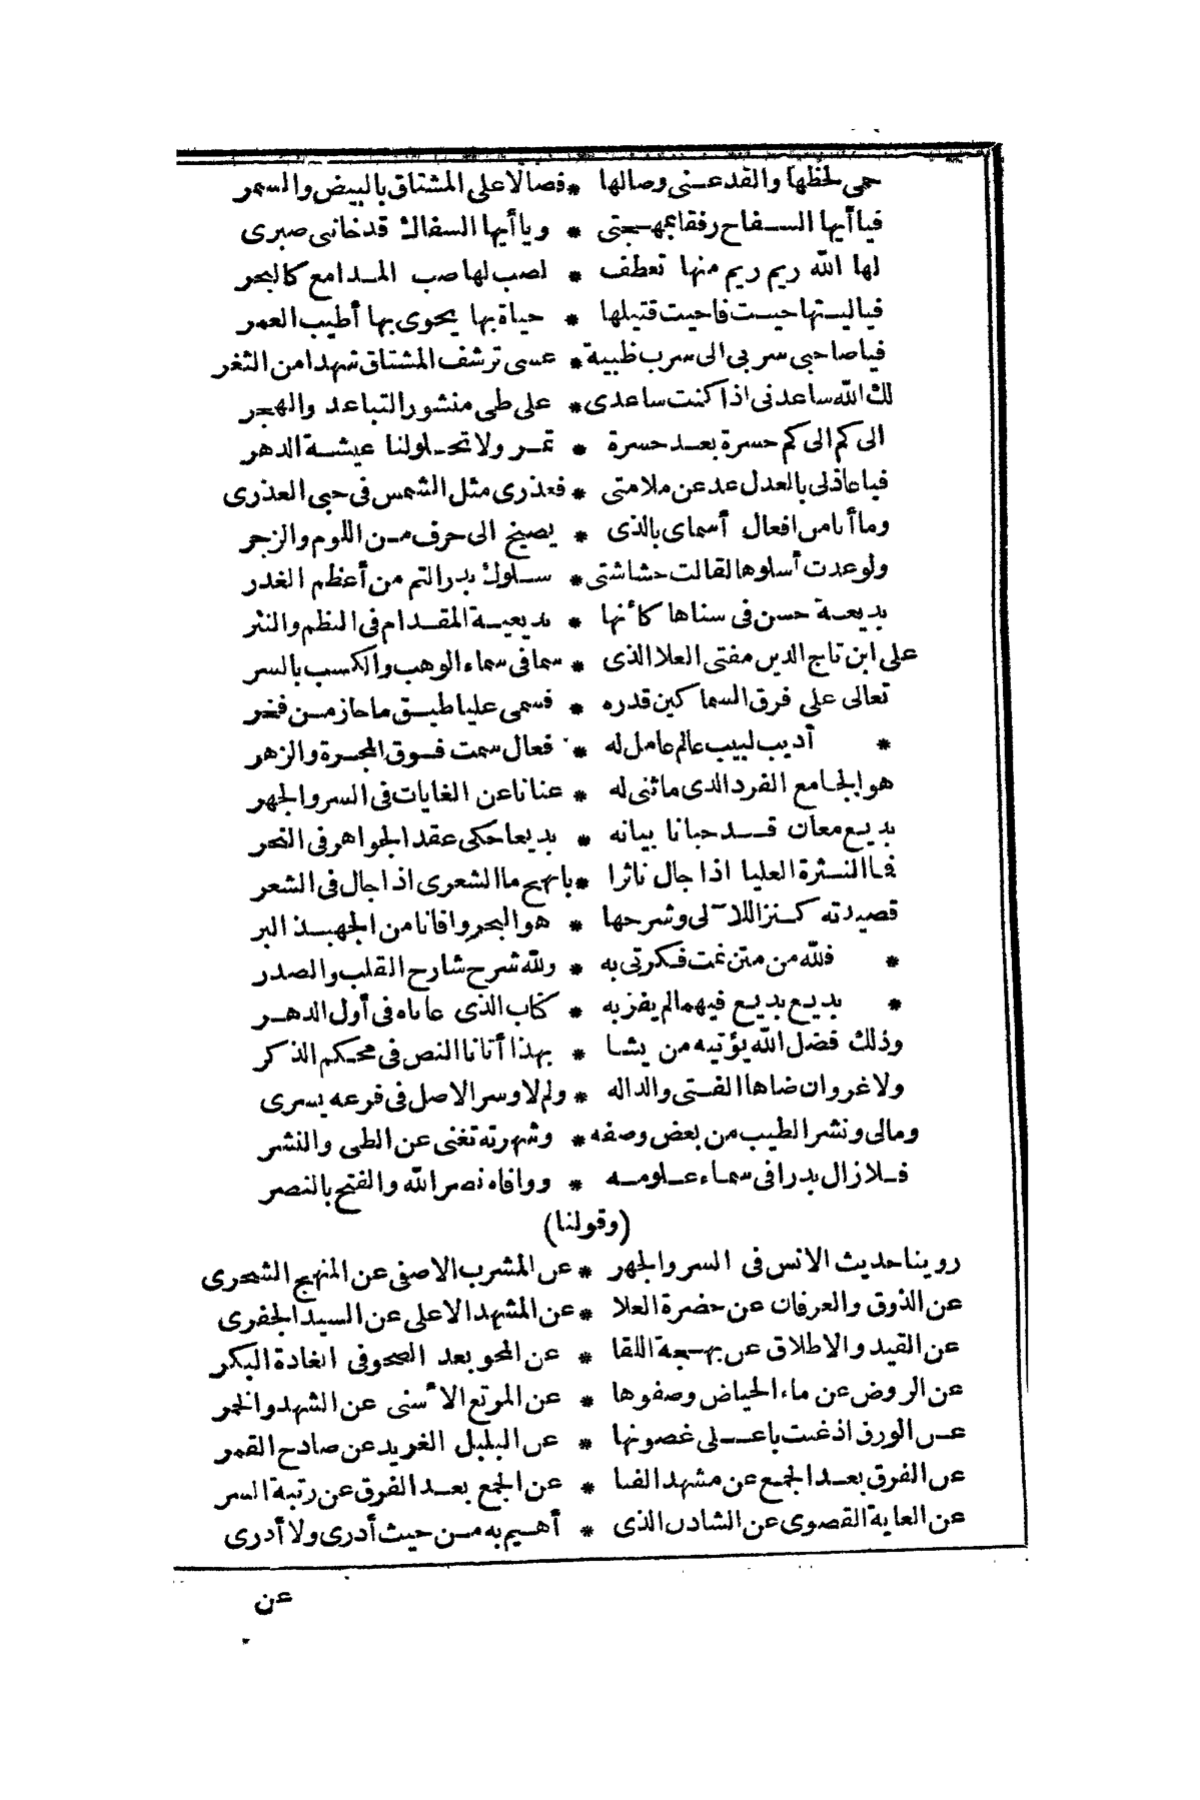 حمى لحظها والقد عنى وصالها * فصالا على المشتاق بالبيض والسمر
فيا أيها السفاح رفقا بمهجتى * ويا أيها السفاك قد خاننى صبرى
لها الله ريم ريم منها تعطف * لصب لها صب المدامع كالبحر
فياليتها حيت فاحيت قتيلها * حياة بها يحوى بها أطيب العمر
فيا صاحبى سر بى الى سرب ظبية * عسى ترشف المشتاق شهدا من الثغر
لك الله ساعدنى اذا كنت ساعدى * على طى منشور التباعد والهجر
الى كم الى كم حسرة بعد حسرة * تمر ولا تحلو لنا عيشة الدهر
فيا عاذلى بالعدل عد عن ملامتى * فعذرى مثل الشمس فى حبى العذرى
وما أنا من افعال أسماى بالذى * يصيخ الى حرف من اللوم والزجر
ولو عدت أسلوها لقالت حشاشتى * سلوك بدر التم من أعظم الغدر
بديعة حسن فى سناها كأنها * بديعية المقدام فى النظم والنثر
على ابن تاج الدين مفتى العلا الذى * سما فى سماء الوهب والكسب بالسر
تعالى على فرق السماكين قدره * فسمى عليا طبق ما حاز من فخر
* أديب لبيب عالم عامل له * فعال سمت فوق المجرة والزهر
هو الجامع الفرد الذى ما ثنى له * عنانا عن الغايات فى السر والجهر
بديع معان قد حبانا بيانه * بديعا حكى عقد الجواهر فى النحر
فما النثرة العليا اذا جال ناثرا * بابهج ما الشعرى اذا جال فى الشعر
قصيدته كنز اللآلى وشرحها * هو البحر وافانا من الجهبذ البر
* فلله من متن نمت فكرتى به * ولله شرح شارح القلب والصدر
* بديع بديع فيهما لم يفز به * كتاب الذى عاناه فى أول الدهر
وذلك فضل الله يؤتيه من يشا * بهذا أتانا النص فى محكم الذكر
ولا غرو ان ضاها الفتى والدا له * ولم لا وسر الاصل فى فرعه يسرى
ومالى ونشر الطيب من بعض وصفه * وشهرته تغنى عن الطى والنشر
فلا زال بدرا فى سماء علومه * ووافاه نصر الله والفتح بالنصر
(وقولنا)
روينا حديث الانس فى السر والجهر * عن المشرب الاصفى عن المنهج الشحرى
عن الذوق والعرفان عن حضرة العلا * عن المشهد الاعلى عن السيد الجفرى
عن القيد والاطلاق عن بهجة اللقا * عن المحو بعد الصحو فى الغادة البكر
عن الروض عن ماء الحياض وصفوها * عن المرتع الأسنى عن الشهد والخمر
عن الورق اذ غنت باعلى غصونها * عن البلبل الغريد عن صادح القمر
عن الفرق بعد الجمع عن مشهد الفنا * عن الجمع بعد الفرق عن رتبة السر
عن الغاية القصوى عن الشادن الذى * أهيم به من حيث أدرى ولا أدرى
عن